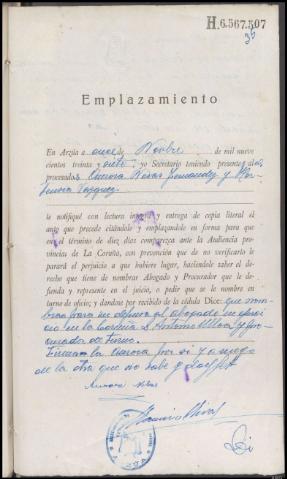 H.6.567.507
Emplazamiento
En Arzúa a once de Nbvbre de mil nueve
cientos treinta y siete; yo Secretario teniendo presente al
procesadas Aurora Rivas Fernandez y
Vazquez
le notifiqué con lectura íntegra y entrega de copia literal el
auto que precede citándole y emplazándole en forma para que
en el término de diez días comparezca ante la Audiencia pro-
vincias de La Coruña, con prevención que de no verificarlo le
parará el perjuicio a que hubiere lugar, haciéndole saber el de-
recho que tiene de nombrar Abogado y Procurador que le de-
fienda y represente en el juicio, o pedir que se le nombre en
turno de oficio; y dandose por recibido de la cédula Dice: que nom-
bran para su defensa al abogado en ejerci
cio en la Coruña D. Antonio Ulloa y pro-
curador de turno.
Firma la Aurora por si y a ruego
de la otra que no sabe y doy fe
Aurora Rivas